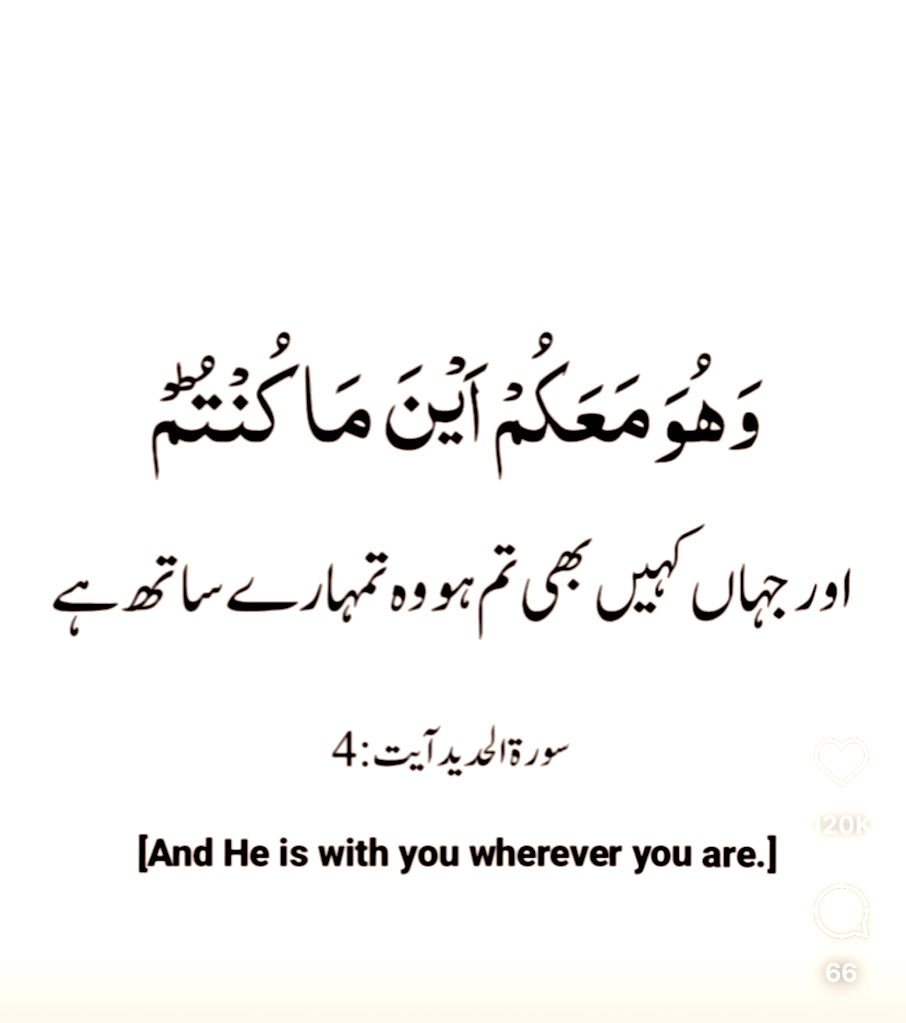 وَهُوَ مَعَكُمْ اَیْنَ مَا كُنْتُمْؕ
اور جہاں کہیں بھی تم ہو وہ تمہارے ساتھ ہے
سورۃ الحدید آیت:4
[And He is with you wherever you are.]
120K
66